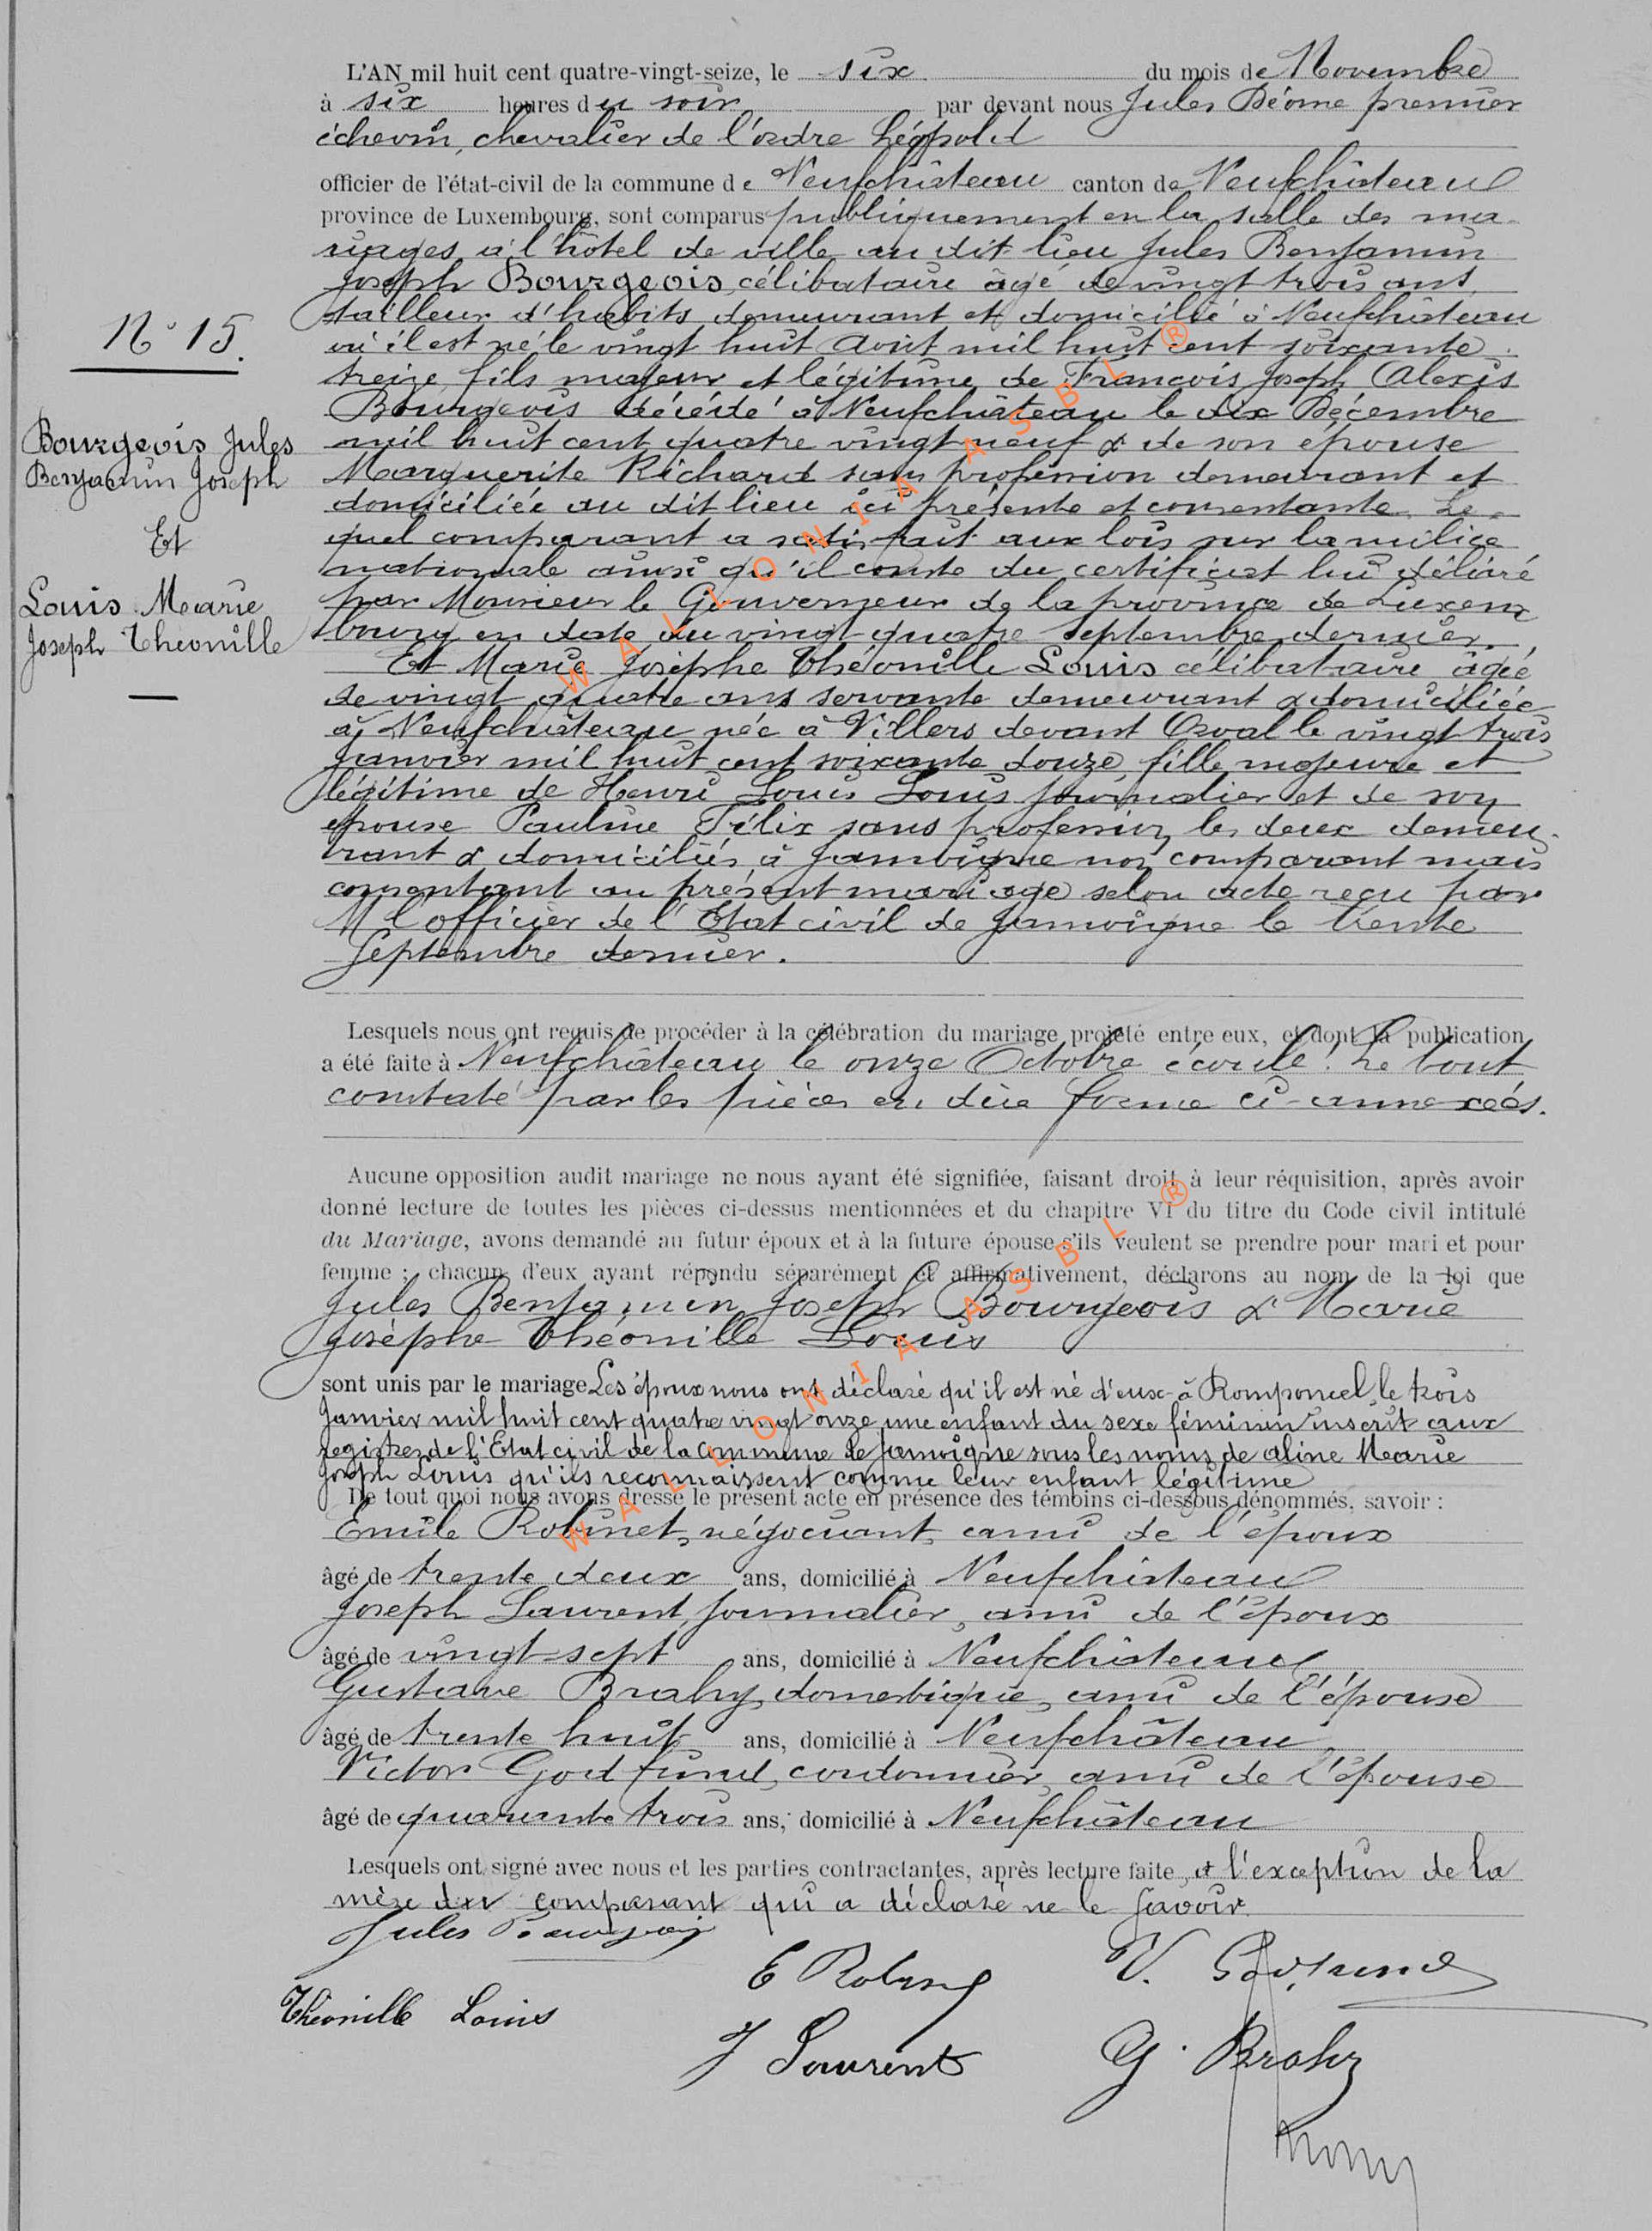 L'AN mil huit cent quatre-vingt-seize, le six du mois de Novembre
à six heures du soir par devant nous Jules Déome premier
échevin, chevalier de l'ordre Léopold
officier de l'état-civil de la commune de Neufchâteau canton de Neufchâteau
province de Luxembourg, sont comparus publiquement en la salle des ma-
riages à l'hôtel de ville au dit lieu Jules Benjamin
Joseph Bourgeois, célibataire âgé de vingt trois ans,
tailleur d'habits demeurant et domicilié à Neufchâteau
où il est né le vingt huit Août mil huit cent soixante
treize, fils majeur et légitime de François Joseph Alexis
Bourgeois décédé à Neufchâteau le dix Décembre
mil huit cent quatre vingt neuf & de son épouse
Marguerite Richard sans profession demeurant et
domiciliée au dit lieu ici présente et consentante. Le-
quel comparant a satisfait aux lois sur la milice
nationale ainsi qu'il conste du certificat lui délivré
par Monsieur le Gouverneur de la province de Luxem
bourg en date du vingt quatre Septembre dernier.
Et Marie Josèphe Théonille Louis célibataire âgée
de vingt quatre ans servante demeurant & domiciliée
à Neufchâteau née à Villers devant Orval le vingt trois
Janvier mil huit cent soixante douze, fille majeure et
légitime de Henri Louis Louis journalier et de son
épouse Pauline Félix sans profession, les deux demeu-
rant & domiciliés à Jamoigne non comparant mais
consentant au présent mariage selon acte reçu par
M l'officier de l'Etat civil de Jamoigne le trente
Septembre dernier.
N° 15.
Bourgeois Jules
Benjamin Joseph
Et
Louis Marie
Joseph Théonille
Lesquels nous ont requis de procéder à la célébration du mariage projeté entre eux, et dont la publication
a été faite à Neufchâteau le onze Octobre écoulé. Le tout
constaté par les pièces en dûe forme ci-annexées.
Aucune opposition audit mariage ne nous ayant été signifiée, faisant droit à leur réquisition, après avoir
donné lecture de toutes les pièces ci-dessus mentionnées et du chapitre VI du titre du Code civil intitulé
du Mariage, avons demandé au futur époux et à la future épouse s'ils veulent se prendre pour mari et pour
femme ; chacun d'eux ayant répondu séparément et affirmativement, déclarons au nom de la loi que
Jules Benjamin Joseph Bourgeois & Marie
Josèphe Théonille Louis
sont unis par le mariage Les époux nous ont déclaré qu'il est né d'eux à Romponcel, le trois
Janvier mil huit cent quatre vingt onze une enfant du sexe féminin inscrit aux
registres de l'Etat civil de la commune de Jamoigne sous les noms de Aline Marie
Joseph Louis qu'ils reconnaissent comme leur enfant légitime
De tout quoi nous avons dressé le présent acte en présence des témoins ci-dessous dénommés, savoir :
Emile Robinet, négociant, ami de l'époux
âgé de trente deux ans, domicilié à Neufchâteau
Joseph Laurent, journalier, ami de l'époux
âgé de vingt-sept ans, domicilié à Neufchâteau
Gustave Brahy, domestique, ami de l'épouse
âgé de trente huit ans, domicilié à Neufchâteau
Victor Godfrind, cordonnier, ami de l'épouse
âgé de quarante trois ans, domicilié à Neufchâteau
Lesquels ont signé avec nous et les parties contractantes, après lecture faite, à l'exception de la
mère du comparant qui a déclaré ne le savoir.
Jules Bourgeois
E Robinet
V. Godfrind
Théonille Louis
J Laurent
G. Brahy
WALLONIA ASBL ®
WALLONIA ASBL ®